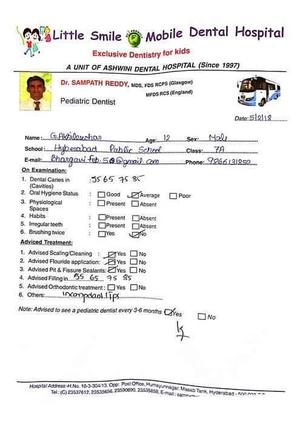 Little Smile Mobile Dental Hospital
Exclusive Dentistry for kids
A UNIT OF ASHWINI DENTAL HOSPITAL (Since 1997)
Dr. SAMPATH REDDY, MDS, FDS RCPS (Glasgow)
MFDS RCS (England)
Pediatric Dentist
Date: 5/2/18
Name: Age: 12 Sex: Male
School: Hyderabad Public School Class: 7A
E-mail: Phone:
On Examination:
1. Dental Caries in (Cavities) 55 65 75 85
2. Oral Hygiene Status : Good Average Poor
3. Physiological Spaces : Present Absent
4. Habits : Present Absent
5. Irregular teeth : Present Absent
6. Brushing twice : Yes No
Adviced Treatment:
1. Advised Scaling/Cleaning : Yes No
2. Advised Flouride application: Yes No
3. Advised Pit & Fissure Sealants: Yes No
4. Advised Filling in 55 65 75 85
5. Advised Orthodontic treatment : Yes No
6. Others: incompetent lips
Note: Advised to see a pediatric dentist every 3-6 months Yes No
Hospital Address-H.No. 10-3-304/13, Opp: Post Office, Humayunnagar, Masab Tank, Hyderabad -
Tel.: (C) 23537612, 23535658, 23530890, 23535658, E-mail: